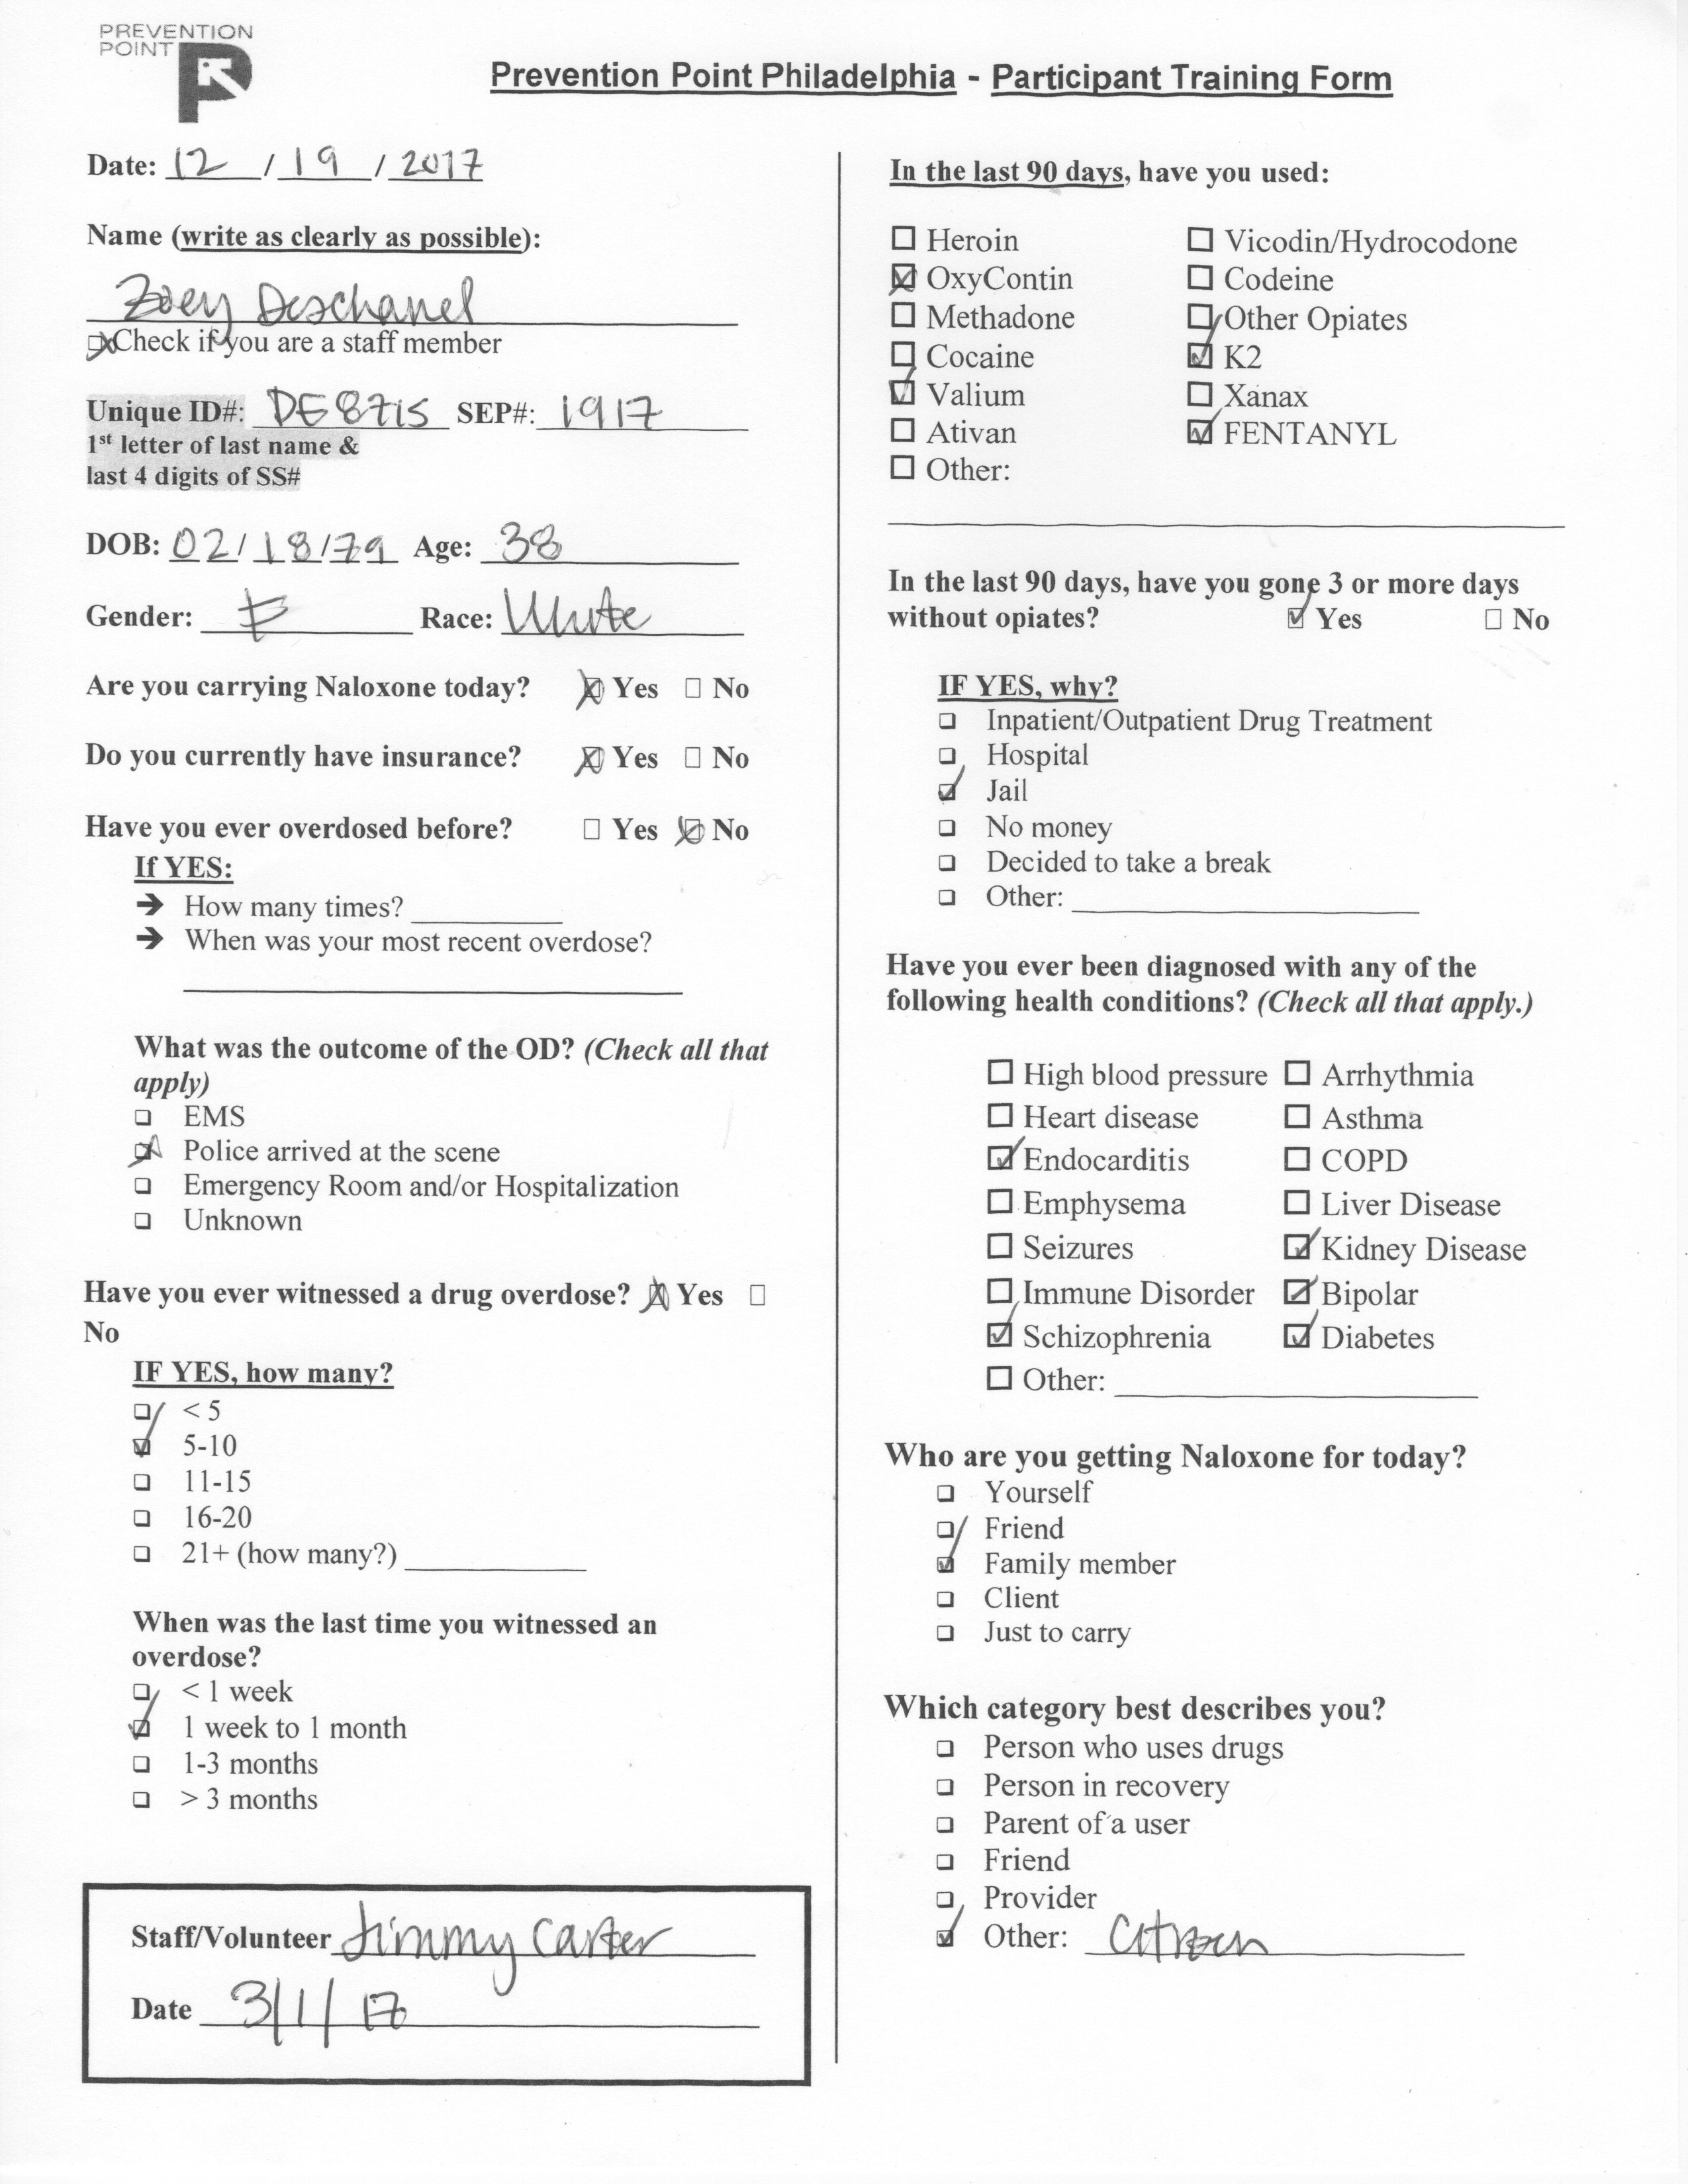 PREVENTION
POINT
Prevention Point Philadelphia - Participant Training Form
Date: 12 / 19 / 2017
Name (write as clearly as possible):
Zoey Deschanel
Check if you are a staff member
Unique ID#: DE8715 SEP#: 1917
1st letter of last name &
last 4 digits of SS#
DOB: 02/18/79 Age: 38
Gender: F Race: White
Are you carrying Naloxone today? Yes No
Do you currently have insurance? Yes No
Have you ever overdosed before? Yes No
If YES:
→ How many times?
→ When was your most recent overdose?
What was the outcome of the OD? (Check all that
apply)
EMS
Police arrived at the scene
Emergency Room and/or Hospitalization
Unknown
Have you ever witnessed a drug overdose? Yes
No
IF YES, how many?
< 5
5-10
11-15
16-20
21+ (how many?)
When was the last time you witnessed an
overdose?
< 1 week
1 week to 1 month
1-3 months
> 3 months
Staff/Volunteer Jimmy Carter
Date 3/1/17
In the last 90 days, have you used:
Heroin Vicodin/Hydrocodone
OxyContin Codeine
Methadone Other Opiates
Cocaine K2
Valium Xanax
Ativan FENTANYL
Other:
In the last 90 days, have you gone 3 or more days
without opiates? Yes No
IF YES, why?
Inpatient/Outpatient Drug Treatment
Hospital
Jail
No money
Decided to take a break
Other:
Have you ever been diagnosed with any of the
following health conditions? (Check all that apply.)
High blood pressure Arrhythmia
Heart disease Asthma
Endocarditis COPD
Emphysema Liver Disease
Seizures Kidney Disease
Immune Disorder Bipolar
Schizophrenia Diabetes
Other:
Who are you getting Naloxone for today?
Yourself
Friend
Family member
Client
Just to carry
Which category best describes you?
Person who uses drugs
Person in recovery
Parent of a user
Friend
Provider
Other: Citizen